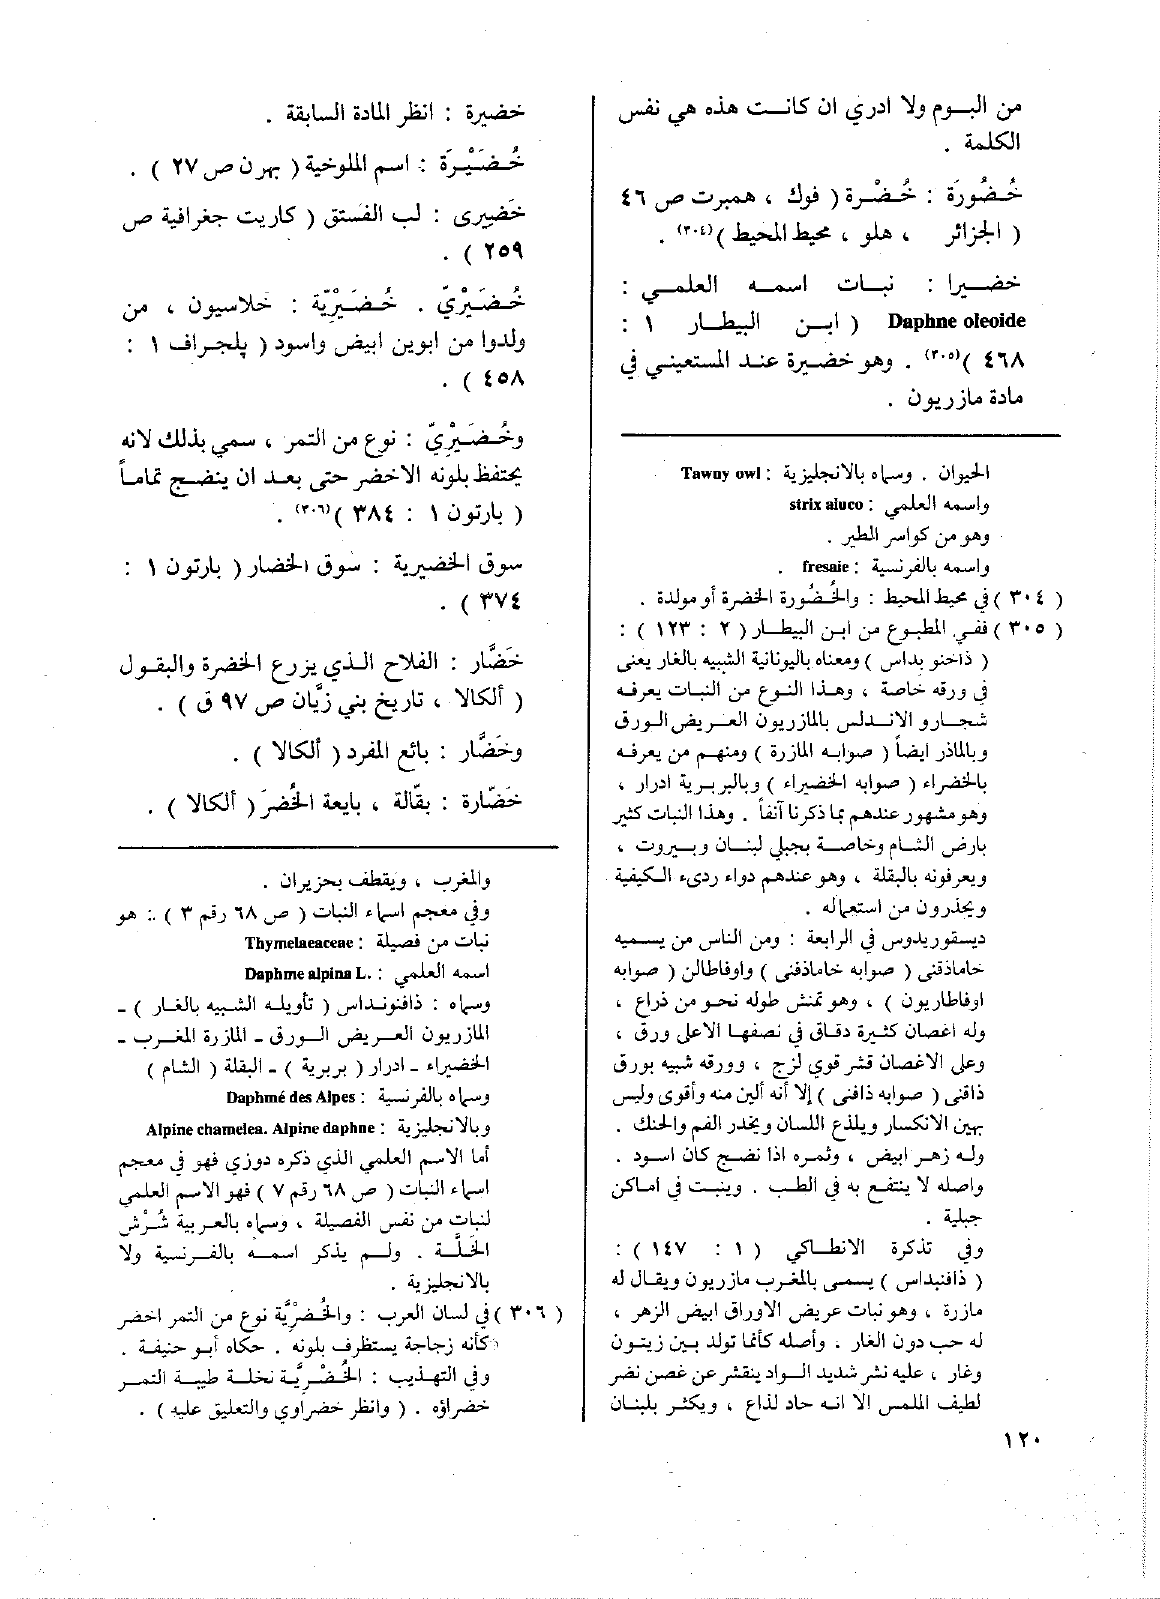 من البوم ولا ادري ان كانت هذه هي نفس
الكلمة .
خُضُورَة : خُضْرة ( فوك ، همبرت ص ٤٦
( الجزائر ، هلو ، محيط المحيط )(٣٠٤) .
خضيرا : نبات اسمه العلمي :
Daphne oleoide ( ابن البيطار ١ :
٤٦٨ )(٣٠٥) . وهو خضيرة عند المستعيني في
مادة مازريون .
الحيوان . وسماه بالانجليزية : Tawny owl
واسمه العلمي : strix aluco
وهو من كواسر الطير .
واسمه بالفرنسية : fresaie .
( ٣٠٤ ) في محيط المحيط : والخُضُورة الخضرة أو مولدة .
( ٣٠٥ ) ففي المطبوع من ابن البيطار ( ٢ : ١٢٣ ) :
( ذاخنو يداس ) ومعناه باليونانية الشبيه بالغار يعني
في ورقه خاصة ، وهذا النوع من النبات يعرفه
شجارو الاندلس بالمازريون العريض الورق
وبالماذر ايضاً ( صوابه المازرة ) ومنهم من يعرفه
بالخضراء ( صوابه الخضيراء ) وبالبربرية ادرار ،
وهو مشهور عندهم بما ذكرنا آنفاً . وهذا النبات كثير
بارض الشام وخاصة بجبلي لبنان وبيروت ،
ويعرفونه بالبقلة ، وهو عندهم دواء ردىء الكيفية
ويحذرون من استعماله .
ديسقوريدوس في الرابعة : ومن الناس من يسميه
خاماذقنى ( صوابه خاماذفنى ) واوقاطالن ( صوابه
اوقاطاريون ) ، وهو تمنش طوله نحو من ذراع ،
وله اغصان كثيرة دقاق في نصفها الاعلى ورق ،
وعلى الاغصان قشر قوي لزج ، وورقه شبيه بورق
ذاقنى ( صوابه ذافنى ) إلا أنه ألين منه وأقوى وليس
بهين الانكسار ويلذع اللسان ويخدر الفم والحنك .
وله زهر ابيض ، وثمره اذا نضج كان اسود .
واصله لا ينتفع به في الطب . وينبت في اماكن
جبلية .
وفي تذكرة الانطاكي ( ١ : ١٤٧ ) :
( ذافنيداس ) يسمى بالمغرب مازريون ويقال له
مازرة ، وهو نبات عريض الاوراق ابيض الزهر ،
له حب دون الغار . وأصله كأنما تولد بين زيتون
وغار ، عليه نشر شديد السواد ينقشر عن غصن نضر
لطيف الملمس الا انه حاد لذاع ، ويكثر بلبنان
خضيرة : انظر المادة السابقة .
خُضَيْرَة : اسم الملوخية ( بهرن ص ٢٧ ) .
خَضيرى : لب الفستق ( كاريت جغرافية ص
٢٥٩ ) .
خُضَيْرِيّ . خُضَيْرِيّة : خلاسيون ، من
ولدوا من ابوين ابيض واسود ( پلجراف ١ :
٤٥٨ ) .
وخُضَيْرِيّ : نوع من التمر ، سمي بذلك لانه
يحتفظ بلونه الاخضر حتى بعد ان ينضج تماماً
( بارتون ١ : ٣٨٤ )(٣٠٦) .
سوق الخضيرية : سوق الخضار ( بارتون ١ :
٣٧٤ ) .
خَضَّار : الفلاح الذي يزرع الخضرة والبقول
( ألكالا ، تاريخ بني زيَّان ص ٩٧ ق ) .
وخَضَّار : بائع المفرد ( ألكالا ) .
خَضّارة : بقّالة ، بايعة الخُضرَ ( ألكالا ) .
والمغرب ، ويقطف بحزيران .
وفي معجم اسماء النبات ( ص ٦٨ رقم ٣ ) : هو
نبات من فصيلة : Thymelaeaceae
اسمه العلمي : Daphme alpina L.
وسماه : ذافنونداس ( تأويله الشبيه بالغار ) ـ
المازريون العريض الورق ـ المازرة المغرب ـ
الخضيراء ـ ادرار ( بربرية ) ـ البقلة ( الشام )
وسماه بالفرنسية : Daphmé des Alpes
وبالانجليزية : Alpine chamelea. Alpine daphne
أما الاسم العلمي الذي ذكره دوزي فهو في معجم
اسماء النبات ( ص ٦٨ رقم ٧ ) فهو الاسم العلمي
لنبات من نفس الفصيلة ، وسماه بالعربية شُرْش
الخَلَّة . ولم يذكر اسمه بالفرنسية ولا
بالانجليزية .
( ٣٠٦ ) في لسان العرب : والخُضْرِيَّة نوع من التمر اخضر
كأنه زجاجة يستظرف بلونه . حكاه أبو حنيفة .
وفي التهذيب : الخُضْريَّة نخلة طيبة التمر
خضراؤه . ( وانظر خضراوي والتعليق عليه ) .
١٢٠